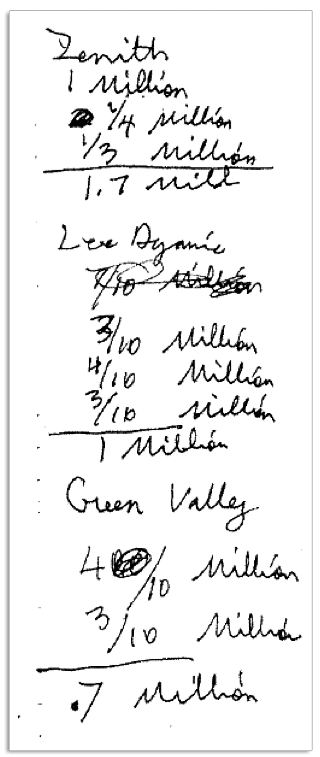 Zenith
1 Million
1/4 Million
1/3 Million
1.7 Mill
Lee Dynamic
7/10 Million
3/10 Million
4/10 Million
3/10 Million
1 Million
Green Valley
4/10 Million
3/10 Million
.7 Million